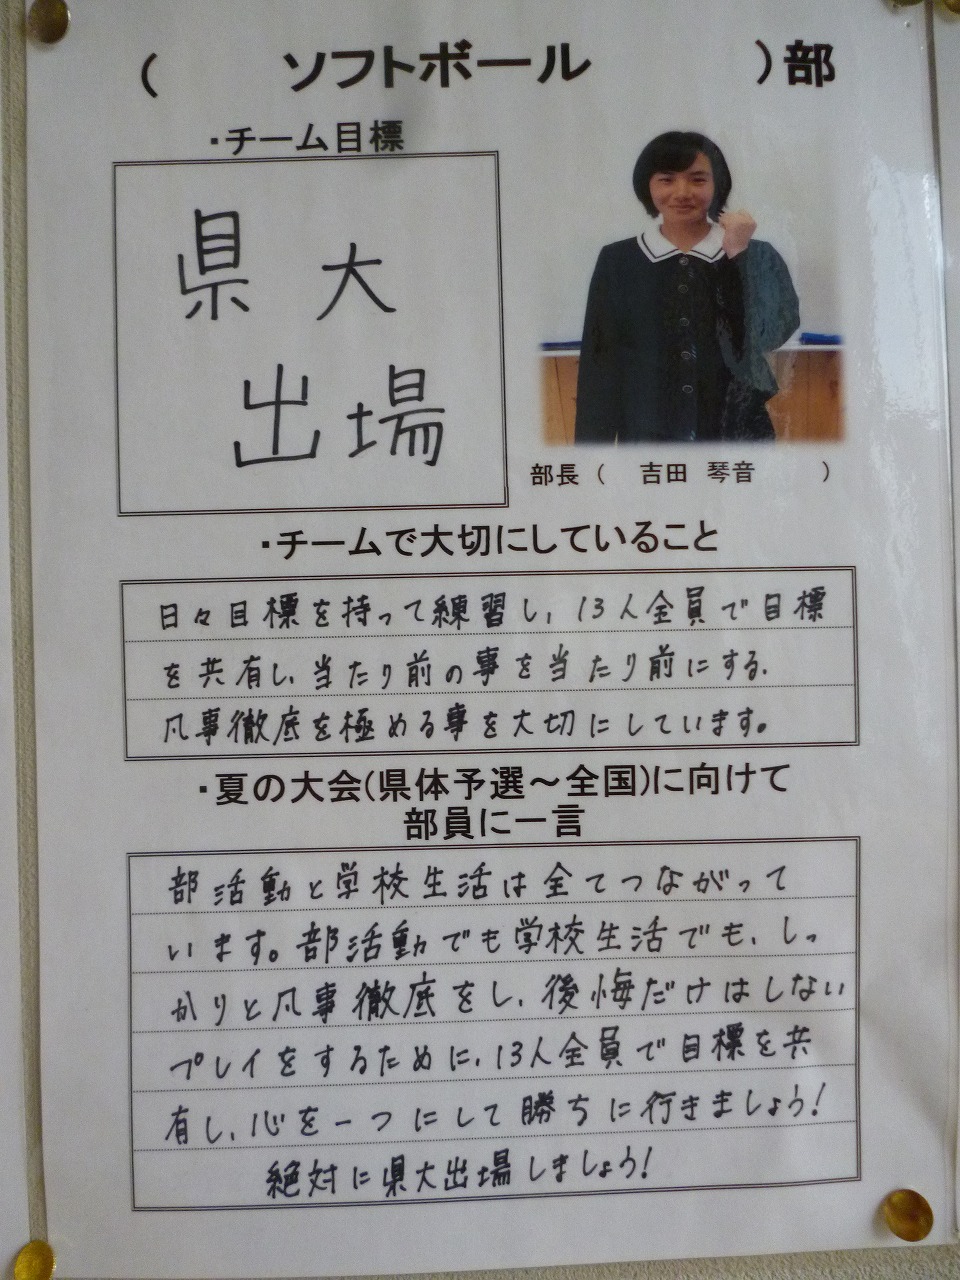 （　ソフトボール　）部
・チーム目標
県大
出場
部長（　吉田 琴音　）
・チームで大切にしていること
日々目標を持って練習し、13人全員で目標
を共有し、当たり前の事を当たり前にする、
凡事徹底を極める事を大切にしています。
・夏の大会(県体予選～全国)に向けて
部員に一言
部活動と学校生活は全てつながって
います。部活動でも学校生活でも、しっ
かりと凡事徹底をし、後悔だけはしない
プレイをするために、13人全員で目標を共
有し、心を一つにして勝ちに行きましょう!
絶対に県大出場しましょう!